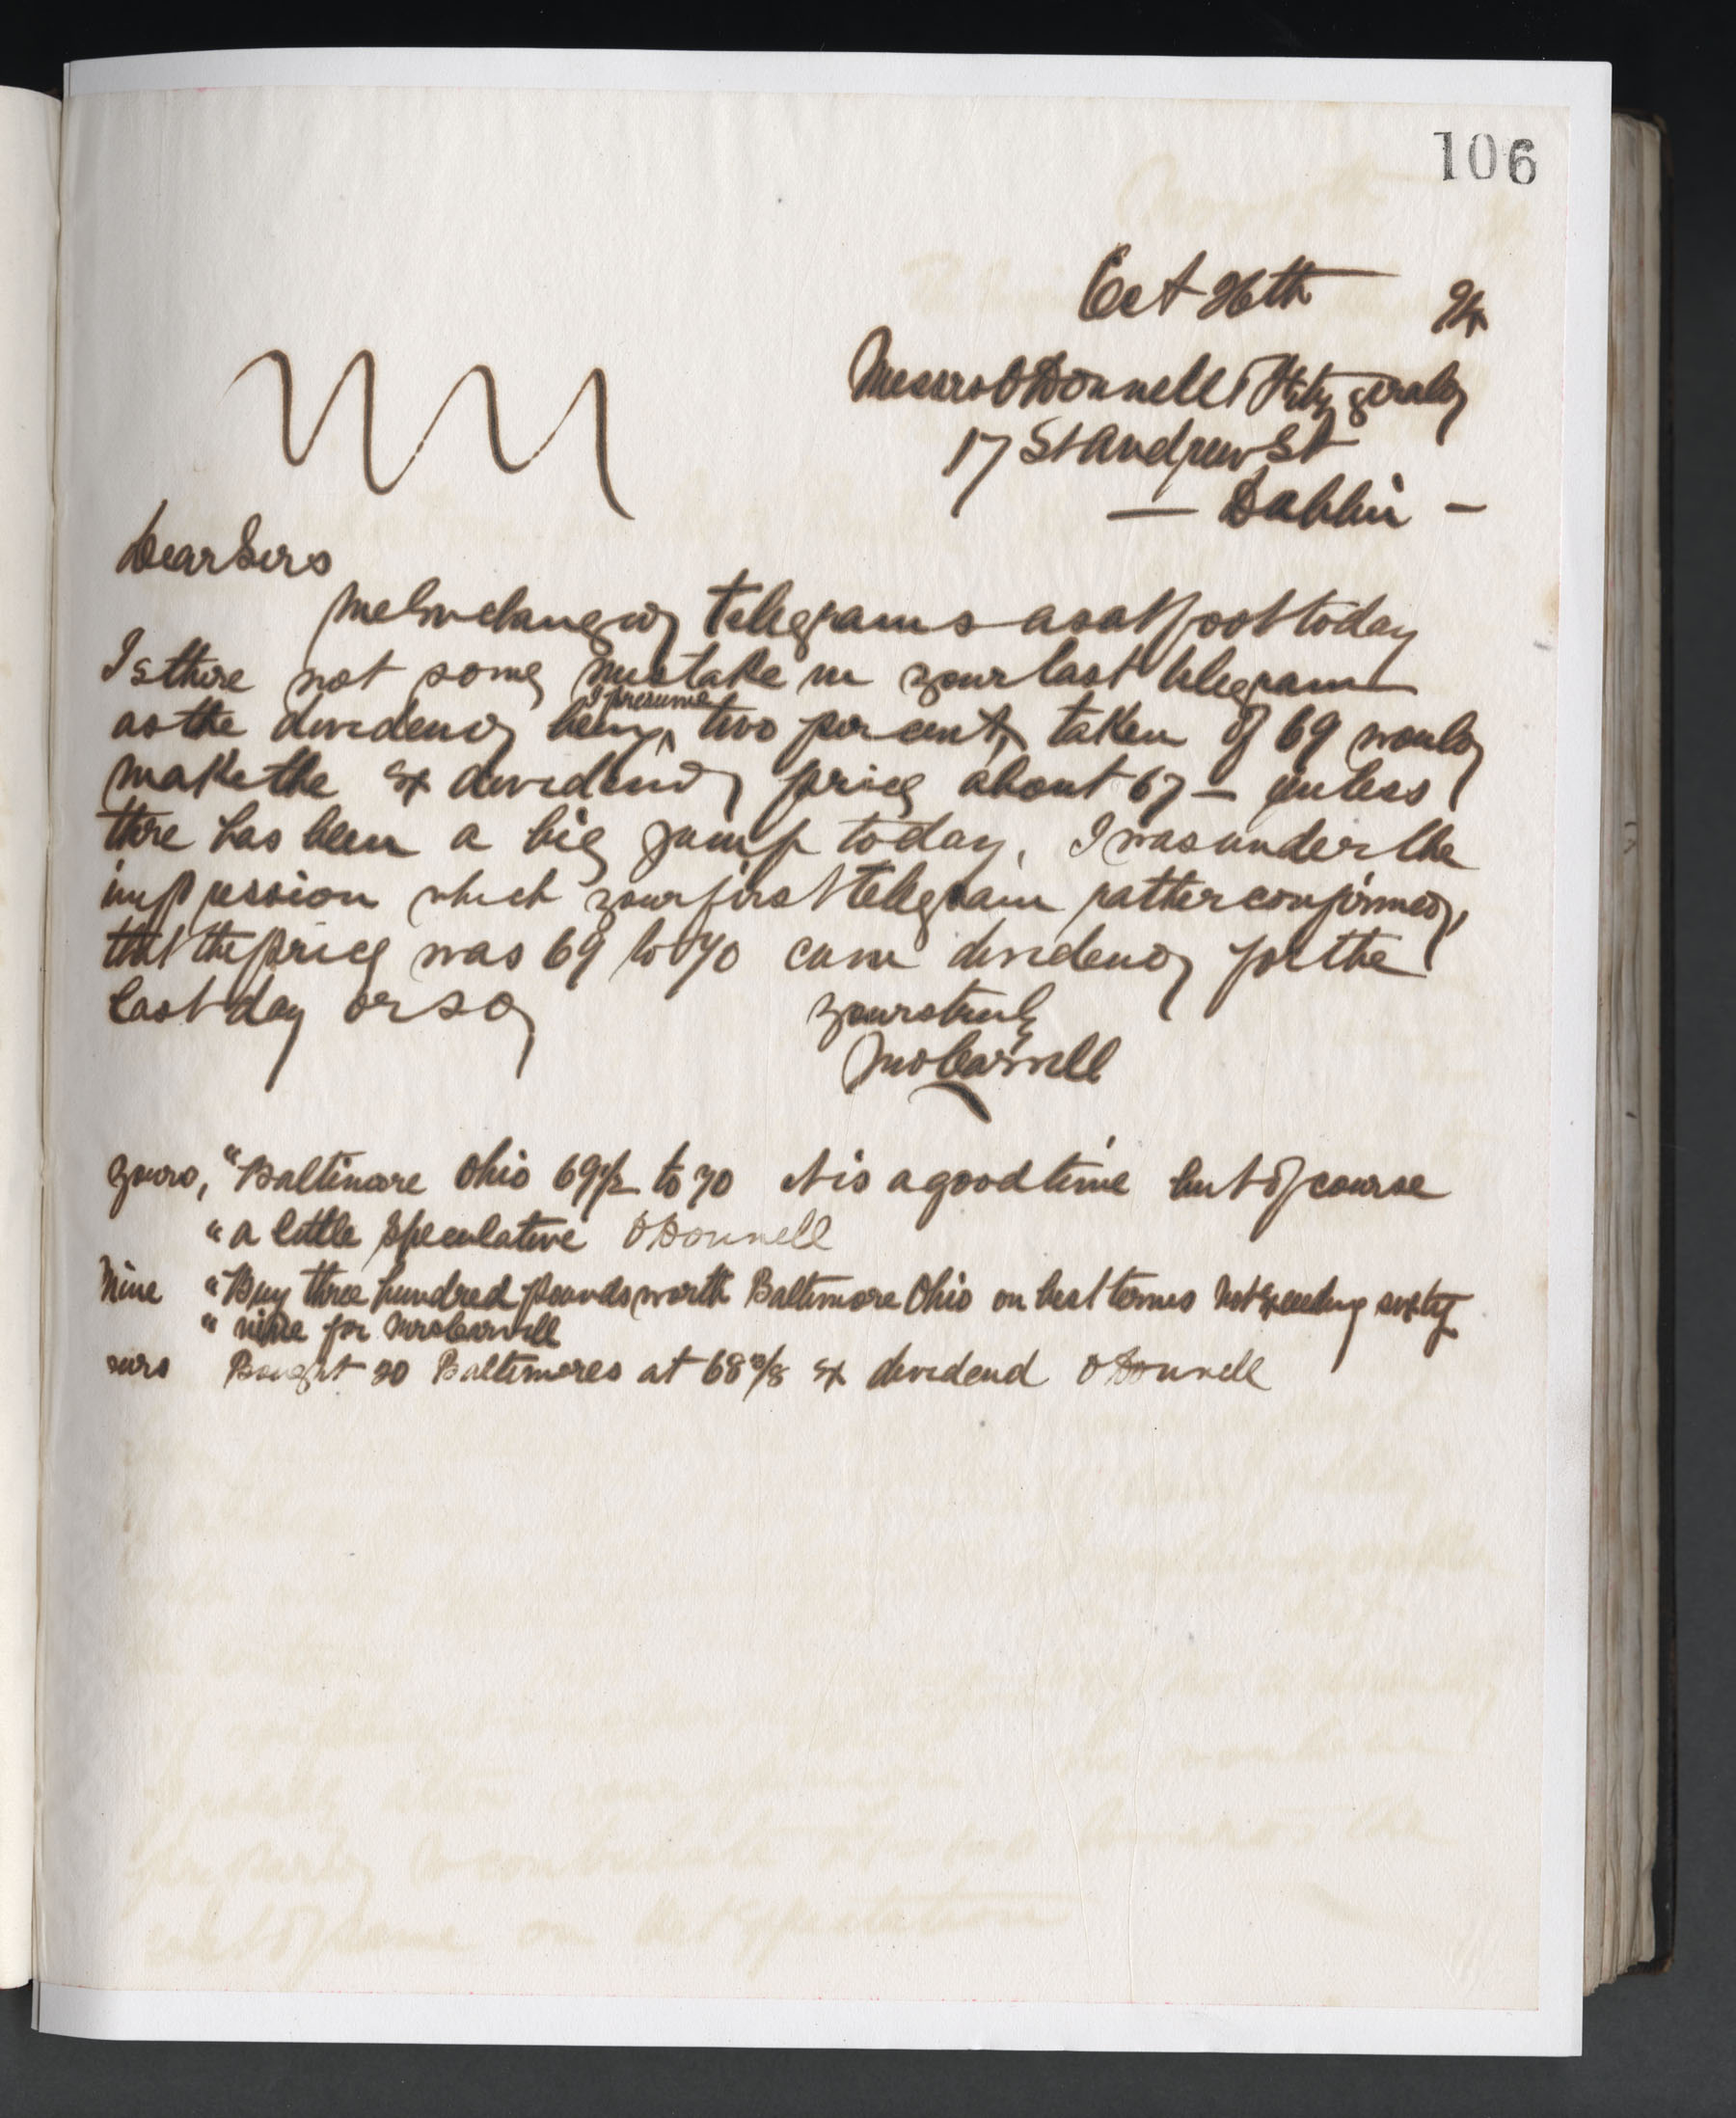 106
Oct 26th 94
Messrs O'Donnell & Fitzgerald
17 St Andrew St
— Dublin —
Dear Sirs
We exchanged telegrams as at foot today
Is there not some mistake in your last telegram
as the dividend being I presume two per cent, taken off 69 would
make the Ex dividend price about 67 — unless
there has been a big jump today. I was under the
impression which your first telegram rather confirmed,
that the price was 69 to 70 cum dividend for the
last day or so
Yours truly
Yours, "Baltimore Ohio 69½ to 70 It is a good time but of course
" a little speculative O'Donnell
Mine "Buy three hundred pounds worth Baltimore Ohio on best terms not exceeding sixty
" nine for
Yours Bought 20 Baltimores at 68 3/8 Ex dividend O'Donnell